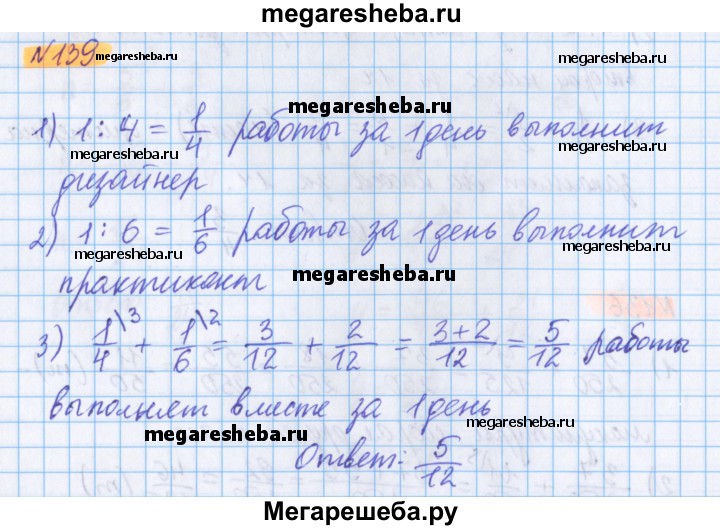 megaresheba.ru
№139 megaresheba.ru
megaresheba.ru
1) 1:4 = 1/4 работы за 1 день выполнит
megaresheba.ru megaresheba.ru
дизайнер
2) 1:6 = 1/6 работы за 1 день выполнит
megaresheba.ru
практикант megaresheba.ru
3) 1/4\3 + 1/6\2 = 3/12 + 2/12 = 3+2/12 = 5/12 работы
выполняет вместе за 1 день
megaresheba.ru megaresheba.ru
Ответ: 5/12
Мегарешеба.ру